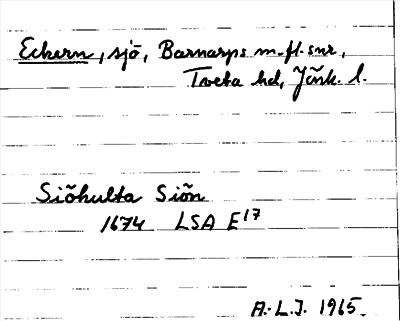 Eckern, sjö, Barnarps m.fl. snr,
Tveta hd, Jönk. l.
Siõhulta Siõn
1674 LSA E17
A.-L.J. 1965.